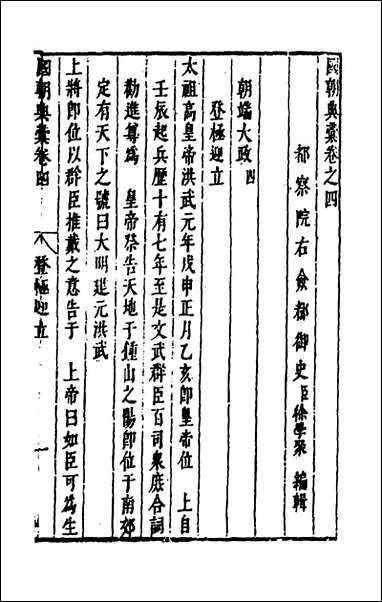 國朝典彙卷之四
都察院右僉都御史臣徐學聚編輯
朝端大政四
登極迎立
太祖高皇帝洪武元年戊申正月乙亥卽皇帝位 上自
壬辰起兵歷十有七年至是文武群臣百司衆庶合詞
勸進尊爲 皇帝祭告天地于鍾山之陽卽位于南郊
定有天下之號曰大明建元洪武
上將卽位以群臣推戴之意告于 上帝曰如臣可爲生
國朝典彙卷四 登極迎立 一